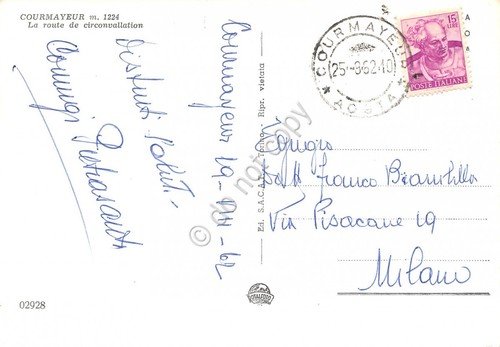 COURMAYEUR m. 1224
La route de circonvallation
Courmayeur 19-VIII-62
Distinti saluti
Coniugi Pietrasanta
Ed. S.A.C.A.T. - Torino - Ripr. vietata
COURMAYEUR
25-8-62.10
* AOSTA *
15
LIRE
POSTE ITALIANE
Egregio
Dott. Franco Brambilla
Via Pisacane 19
Milano
02928
do not copy